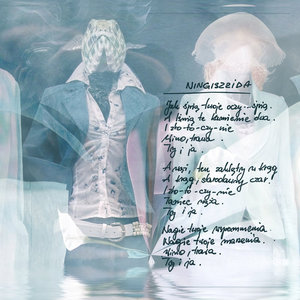 NINGISZZIDA
Jak śpią twoje oczy... śpią.
I śnią te kamienie dwa.
I sto-to-czy-nie
Wino, trawa
Ty i ja.
A węzi, ten zaklęty w krąg
A krąg, starodawny czar!
I sto-to-czy-nie
Taniec węża.
Ty i ja.
Nagie twoje wspomnienia
Nagie twoje marzenia.
Wino, trawa
Ty i ja.